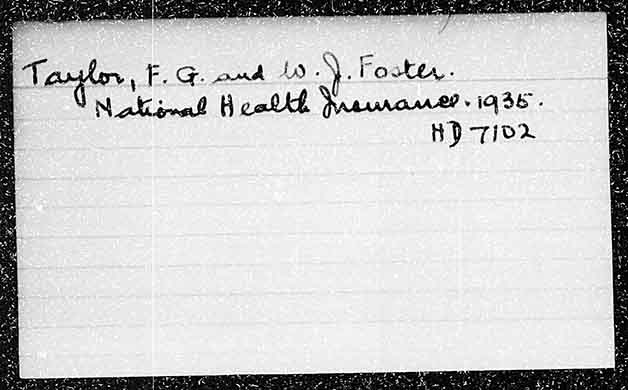 Taylor, F. G. and W. J. Foster.
National Health Insurance. 1935.
HD 7102